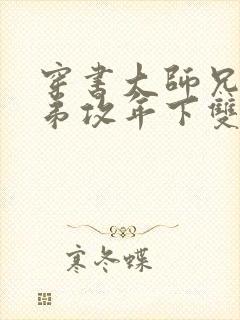 穿書大師兄
弟攻年下雙
寒冬蝶